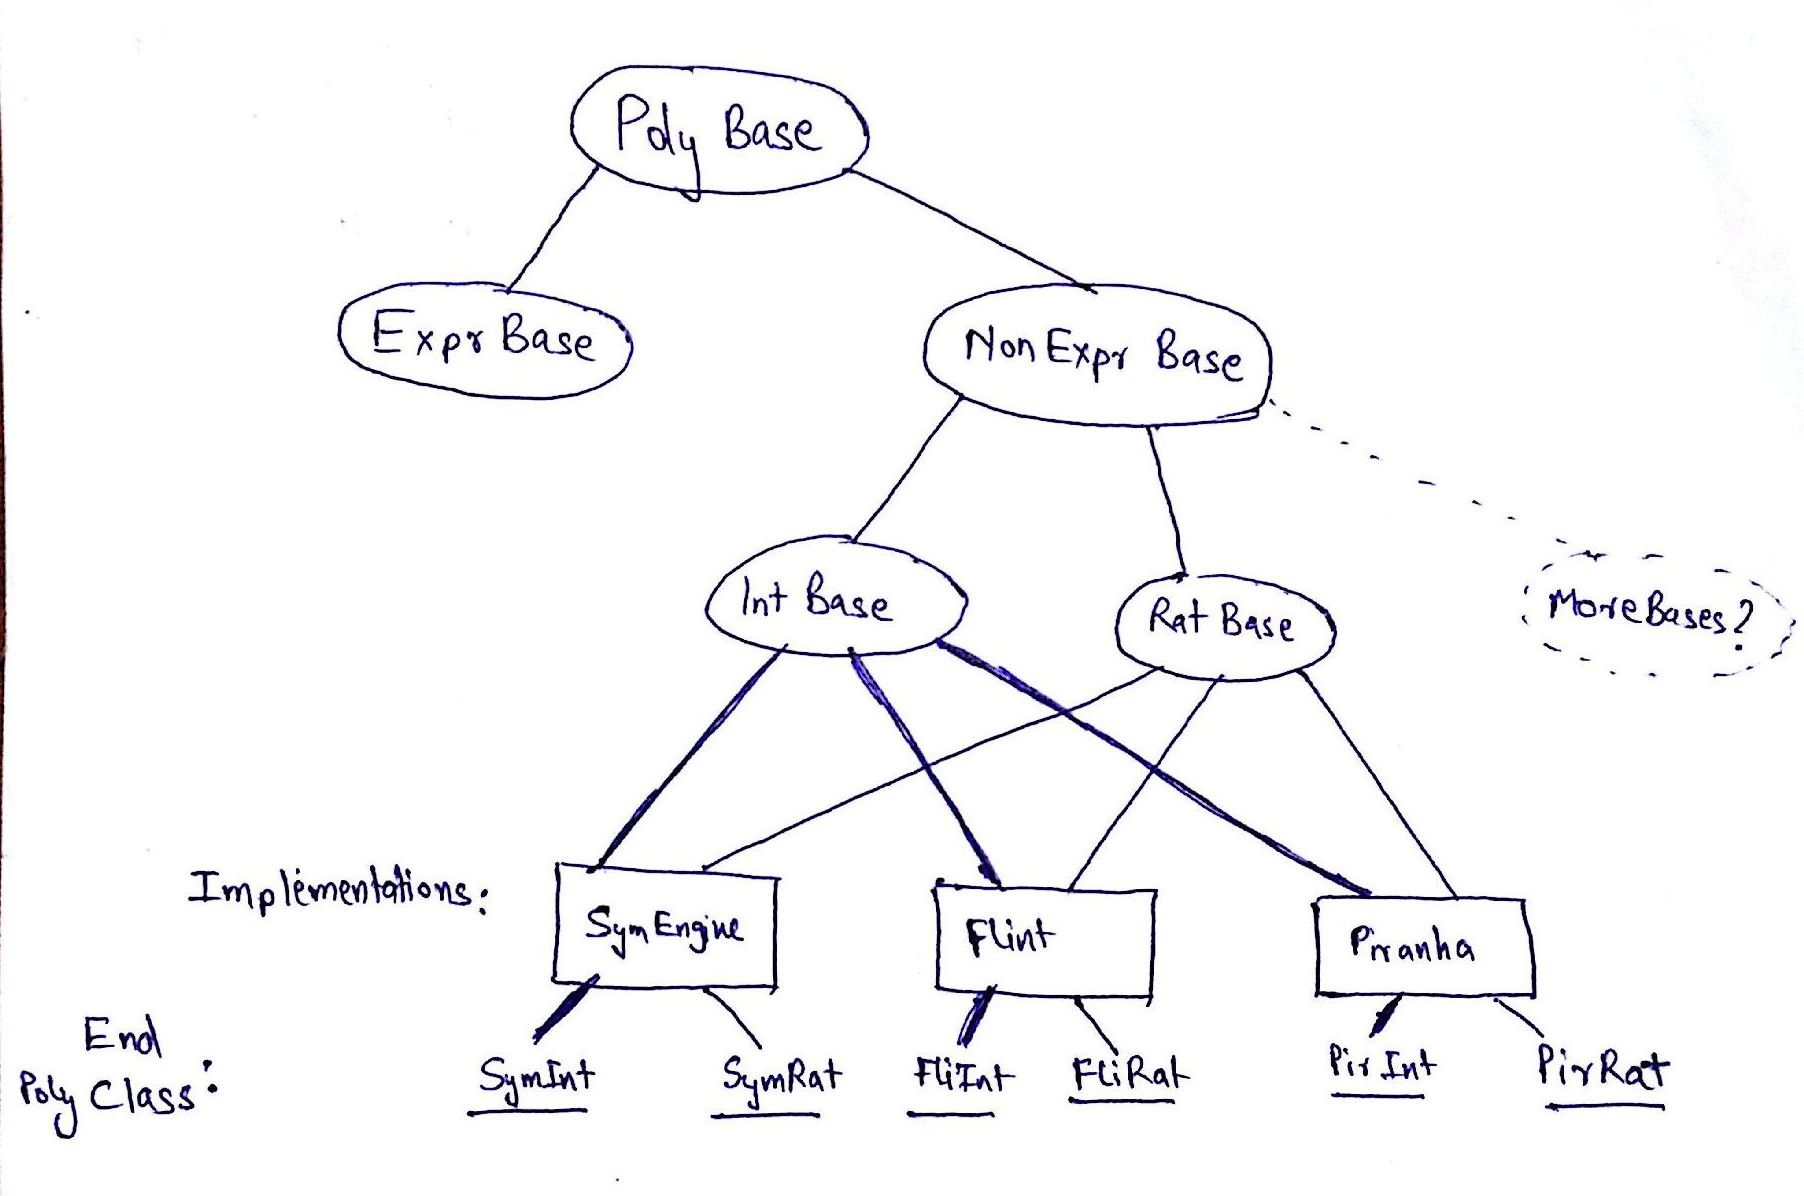 Poly Base
Expr Base
Non Expr Base
Int Base
Rat Base
More Bases?
Implementations:
SymEngine
Flint
Piranha
End
Poly Class:
SymInt
SymRat
FliInt
FliRat
PirInt
PirRat